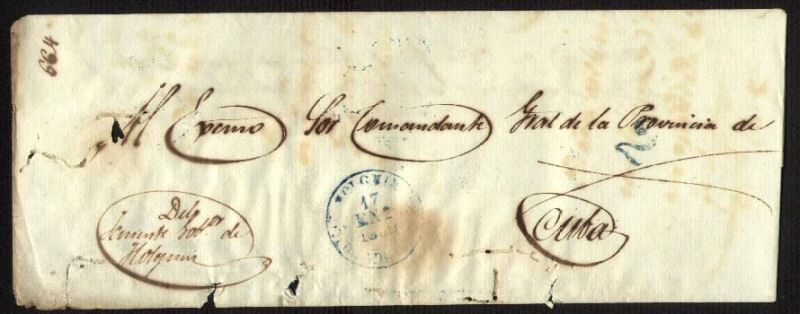 664
Al Exemo Sor Comandante Gral de la Provincia de
Cuba
Del
Teniente Gobor de
Holguin
HOLGUIN
17
ENE
2